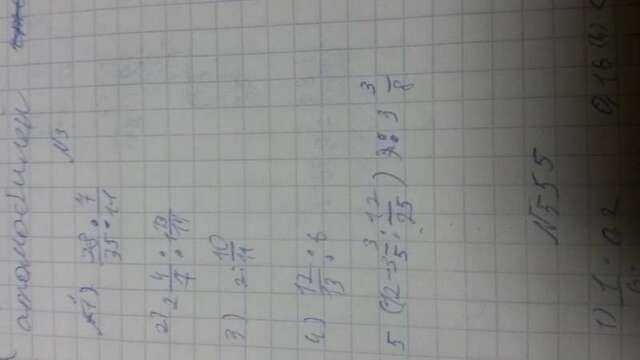 атомобилей
N3
1) 28/35 : 7/11
2) 2 4/7 : 1 13/14
3) 2 : 10/11
4) 12/13 : 6
5 (12 - 3 3/5 : 12/25) : 3 3/8
N555
1) 1